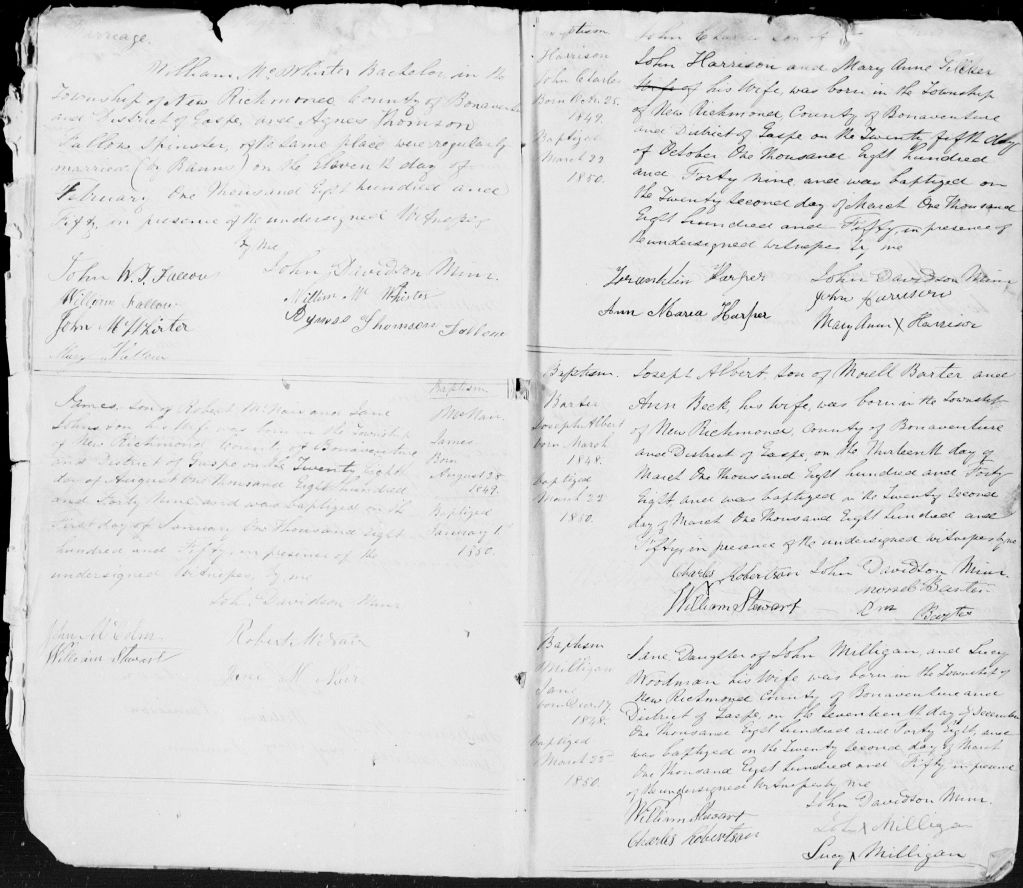 Marriage.
William McWhirter Bachelor in the
Township of New Richmond, County of Bonaventure
and District of Gaspe, and Agnes Thomson
Fallow Spinster, of the same place were regularly
married (by Banns) on the Eleventh day of
February One Thousand Eight hundred and
Fifty, in presence of the undersigned Witnesses
By me
John Davidson Minr.
John W. T. Fallow
William Fallow
William Mc Whirter
John McWhirter
Thomson Fallow
Mary Fallow
Baptism
McNair
James
Born
August 28
1849.
Baptized
January 1st
1850.
James, son of Robert McNair and Jane
Johnston his Wife was born in the Township
of New Richmond County of Bonaventure
and District of Gaspe on the Twenty Eighth
day of August One thousand Eight hundred
and Forty Nine and was baptized on the
First day of January One thousand Eight
hundred and Fifty, in presence of the
undersigned Witnesses, by me
John Davidson Minr
Robert McNair
William Stewart
Baptism
Harrison
John Charles
Born Octr. 25.
1849.
Baptized
March 22
1850.
John Charles son of
John Harrison and Mary Anne
his Wife, was born in the Township
of New Richmond, County of Bonaventure
and District of Gaspe on the Twenty fifth day
of October One thousand Eight hundred
and Forty Nine and was baptized on
the Twenty Second day of March One Thousand
Eight hundred and Fifty, in presence of
the undersigned witnesses by me
Franklin Harper
John Davidson Minr
John Harrison
Ann Maria Harper
Mary Ann X Harrison
Baptism.
Barter
Joseph Albert
born March
1848.
baptized
March 22
1850.
Joseph Albert, son of Morell Barter and
Ann Beck, his Wife, was born in the Township
of New Richmond, County of Bonaventure
and District of Gaspe, on the Thirteenth day of
March One thousand Eight hundred and Forty
Eight, and was baptized on the Twenty Second
day of March One Thousand Eight hundred and
Fifty, in presence of the undersigned witnesses by me
Charles Robertson
John Davidson Minr
William Stewart
Barter
Baptism
Milligan
Jane
born Decr. 17.
1848.
baptized
March 22d
1850.
Jane Daughter of John Milligan, and Lucy
Woodman his Wife was born in the Township of
New Richmond County of Bonaventure and
District of Gaspe, on the Seventeenth day of December
One thousand Eight hundred and Forty Eight, and
was baptized on the Twenty Second day of March
One Thousand Eight hundred and Fifty in presence
of the undersigned Witnesses by me
John Davidson Minr.
William Stewart
John X Milligan
Charles Robertson
Lucy X Milligan